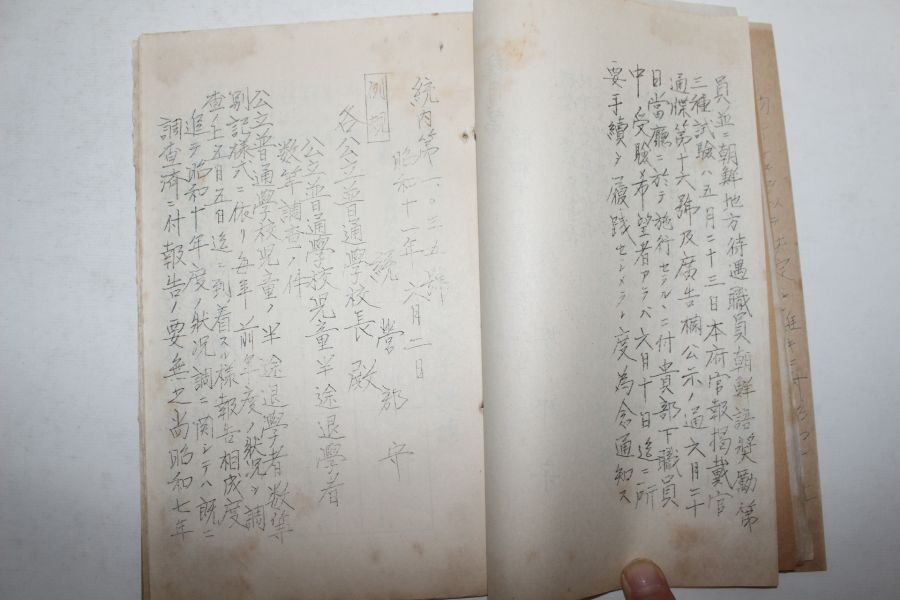 員並ニ朝鮮地方待遇職員朝鮮語奬勵第
三種試驗ハ五月二十三日本府官報揭載官
通牒第十六號及廣告欄公示ノ通六月二十
日當廳ニ於テ施行セラルヽニ付貴部下職員
中受驗希望者アラバ六月十日迄ニ所
要手續ヲ履踐セシメラレ度為念通知ス
統內第一〇三五號
昭和十一年六月二日
統營郡守
例規
各公立普通學校長殿
公立普通學校児童半途退學者
数等調査ノ件
公立普通學校児童ノ半途退學者数等
別記様式ニ依リ每年前年度ノ狀況ヲ調
査シ五月五日迄ニ到着スル様報告相成度
追テ昭和十年度ノ狀況調ニ関シテハ既ニ
調査済ニ付報告ノ要無之尚昭和七年